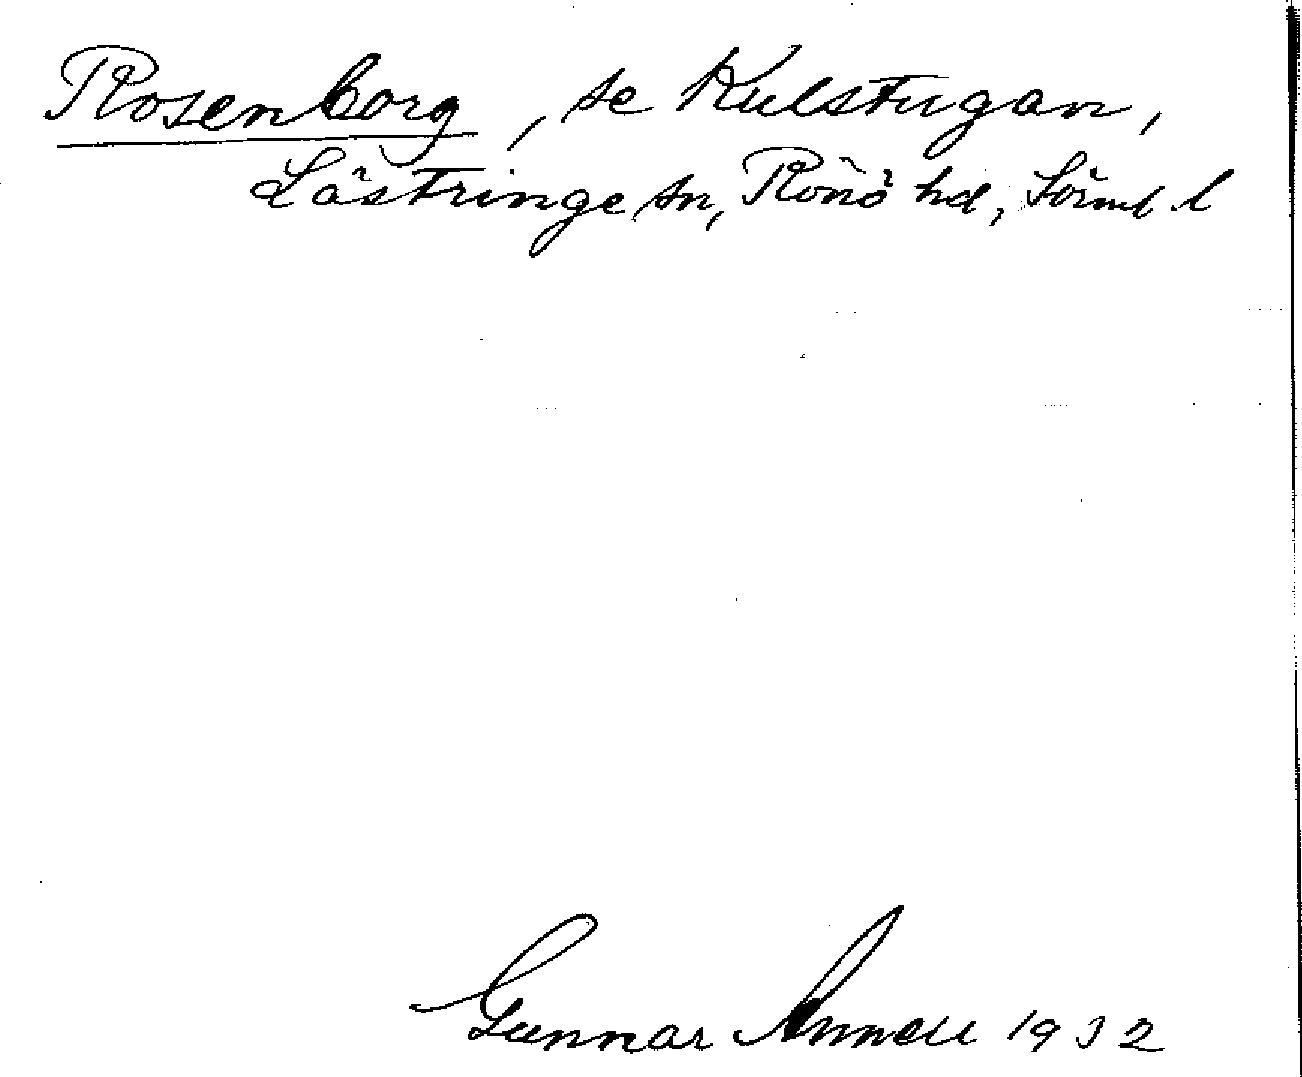 Rosenborg, se Kulstugan,
Lästringe sn, Rönö hd, Sörml. l
Gunnar Annell 1932